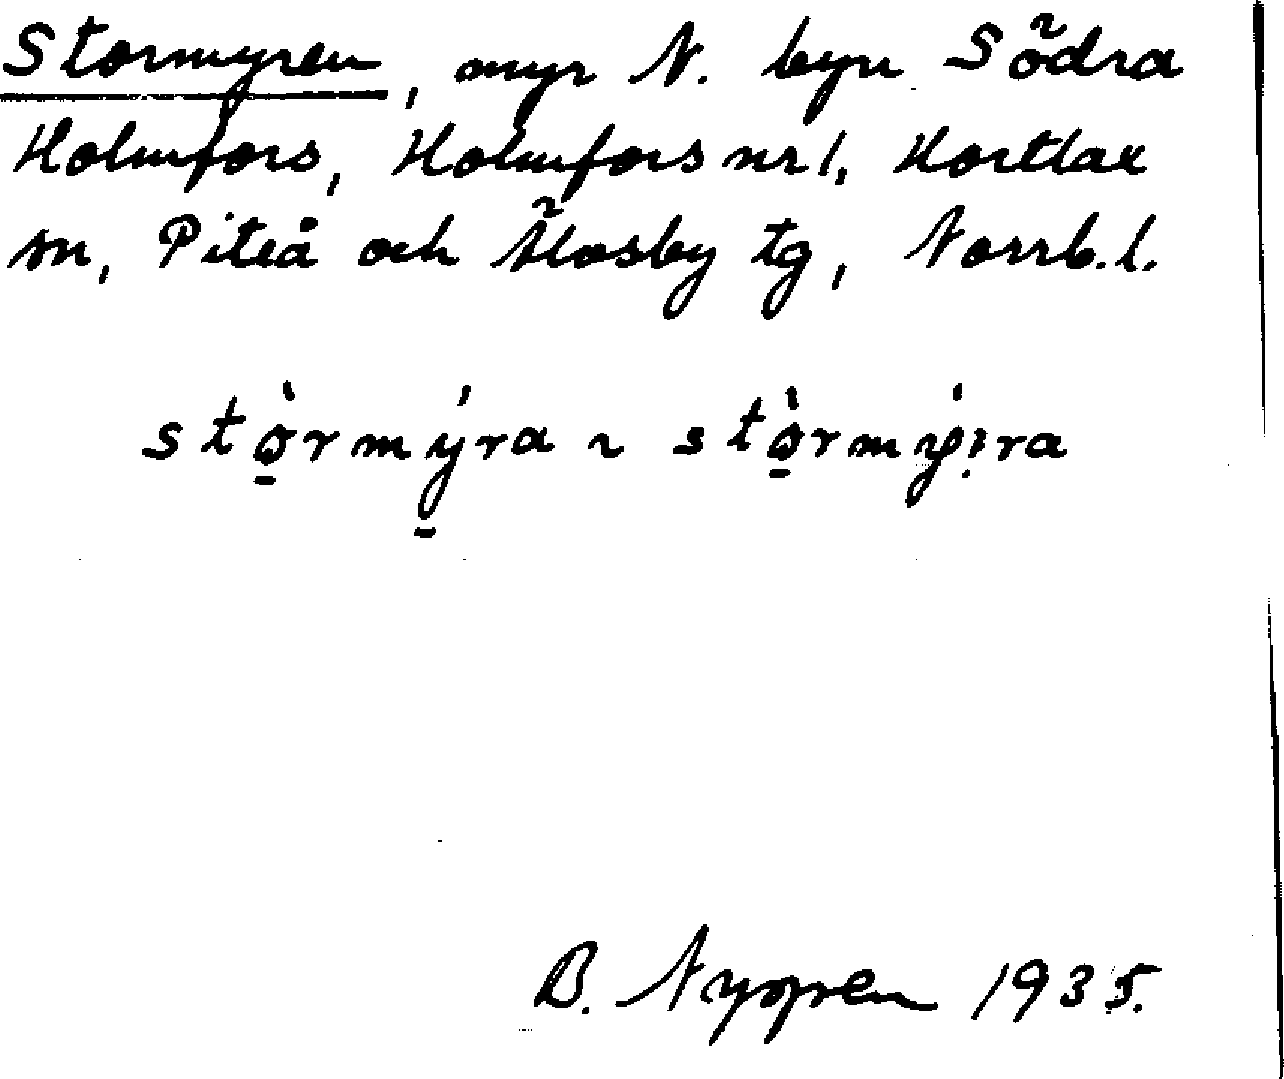 Stormyren, myr N. byn Södra
Holmfors, Holmfors nr 1, Hortlax
sn, Piteå och Älvsby tg, Norrb. l.
stò̱rmý̱ra ~ stò̱rmýːra
B. Nygren 1935.